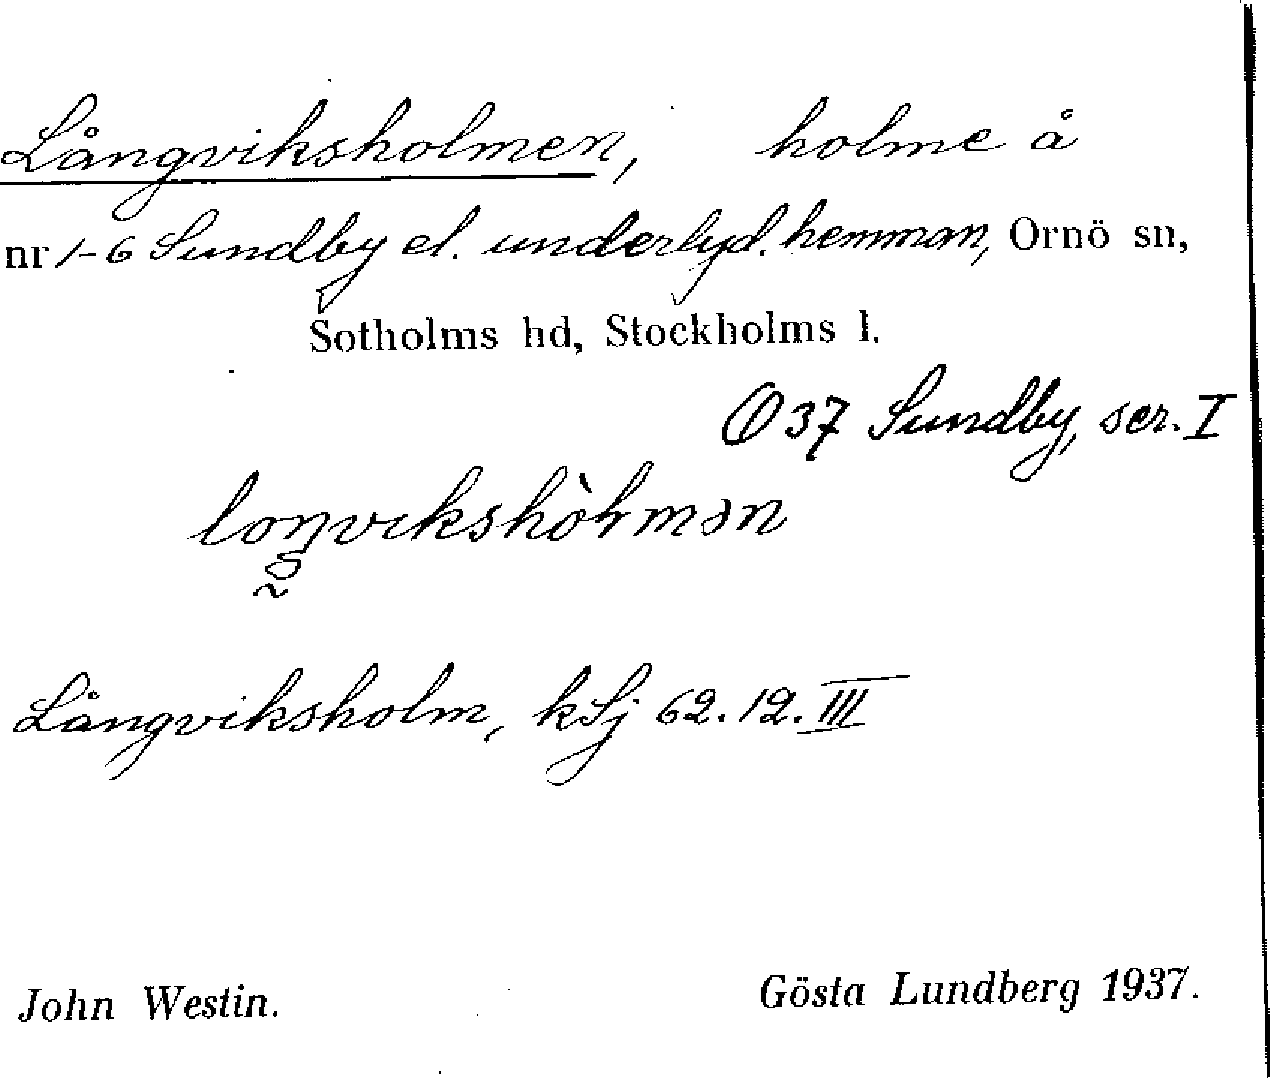 Långviksholmen, holme å
nr 1-6 Sundby el. underlyd. hemman, Ornö sn,
Sotholms hd, Stockholms l.
Ö 37 Sundby, ser. I
Långviksholm, kSj 62.12.III
John Westin. Gösta Lundberg 1937.